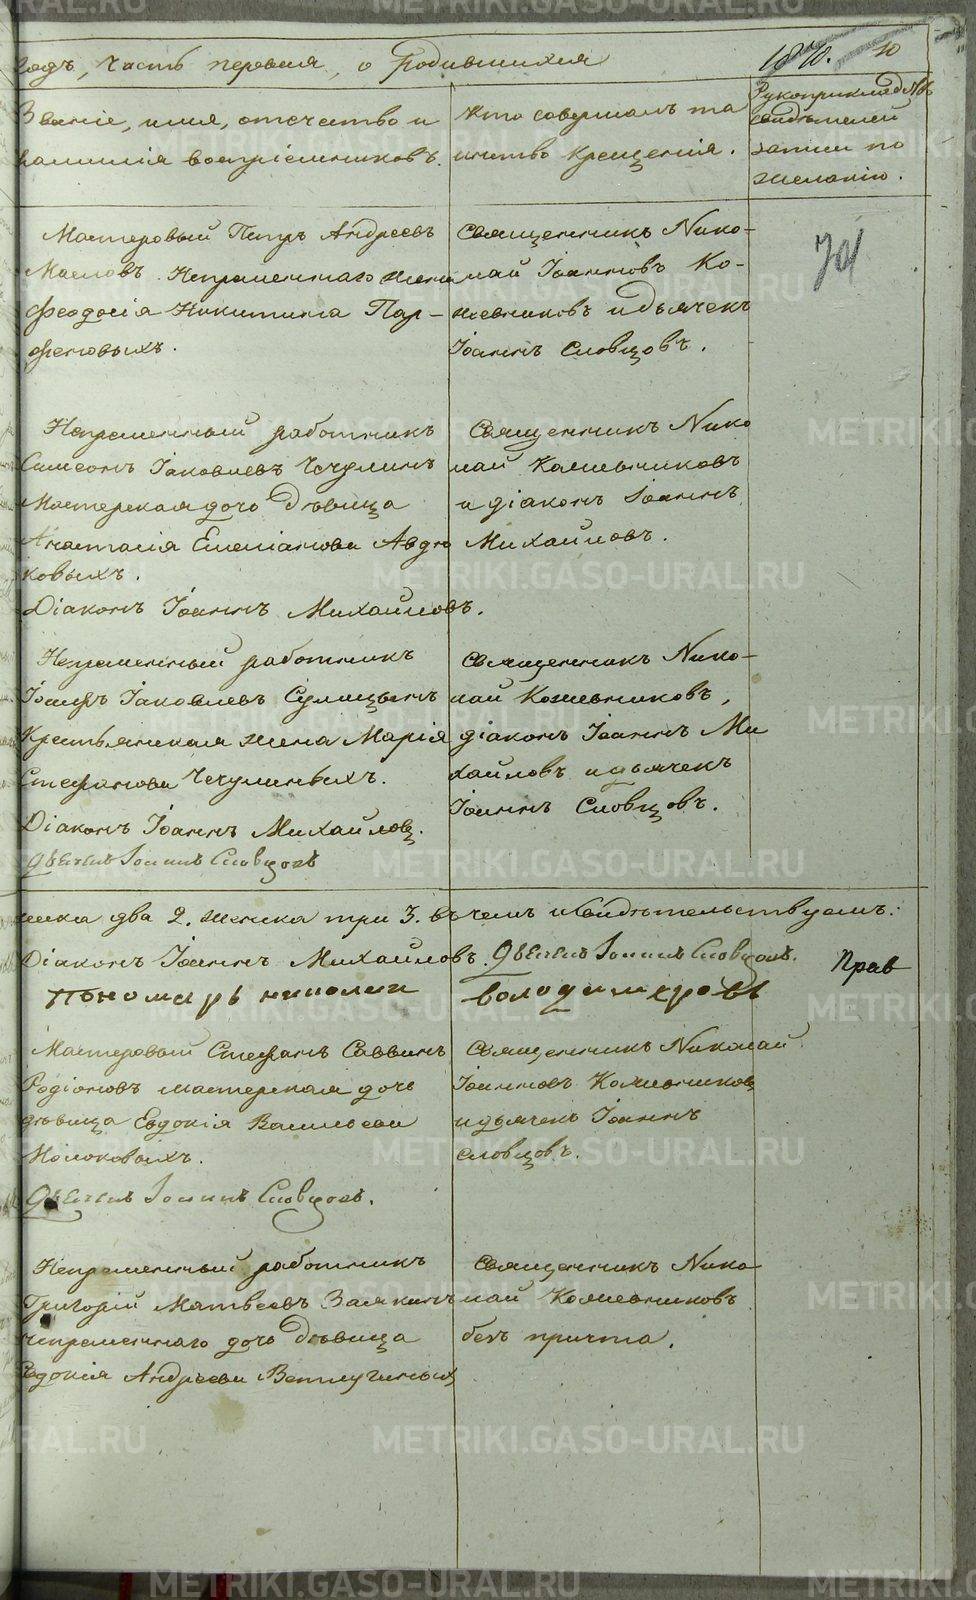 годъ, часть первая, о родившихся
1840. 10
Званіе, имя, отчество и
фамилія воспріемниковъ.
Кто совершалъ та
инство крещенія.
Рукоприкладство
свидѣтелей
записи по
желанію.
Мастеровый Петръ Андреевъ
Масловъ. Непременнаго жена
Феодосія Никитина Пар-
феновыхъ.
Священникъ Нико-
лай Іоанновъ Ко-
жевниковъ и дьячекъ
Іоаннъ Словцовъ.
Непременный работникъ
Симеонъ Іаковлевъ Чечулинъ
Мастерская дочь дѣвица
Анастасія Емеліанова Авдю
ковыхъ.
Діаконъ Іоаннъ Михайловъ.
Священникъ Нико
лай Кожевниковъ
и діаконъ Іоаннъ
Михайловъ.
Непременный работникъ
Іосифъ Іаковлевъ Сулицынъ
Крестьянская жена Марія
Стефанова Чечулиныхъ.
Діаконъ Іоаннъ Михайловъ.
Дьячекъ Іоаннъ Словцовъ
Священникъ Нико-
лай Кожевниковъ,
діаконъ Іоаннъ Ми
хайловъ и дьячекъ
Іоаннъ Словцовъ.
два 2. женска три 3. въ чемъ и свидѣтельствуемъ:
Діаконъ Іоаннъ Михайловъ. Дьячекъ Іоаннъ Словцовъ.
Пономарь николаи володимеровъ
Прав
Мастеровый Стефанъ Саввинъ
Родіоновъ мастерская дочь
дѣвица Евдокія Васильева
Молоковыхъ.
Дьячекъ Іоаннъ Словцовъ.
Священникъ Николай
Іоанновъ Кожевниковъ
и дьячекъ Іоаннъ
Словцовъ.
Непременный работникъ
Григорій Матвеевъ Залкинъ
непременнаго дочь дѣвица
Евдокія Андреева Ветлугиныхъ
Священникъ Нико
лай Кожевниковъ
безъ причта.
METRIKI.GASO-URAL.RU